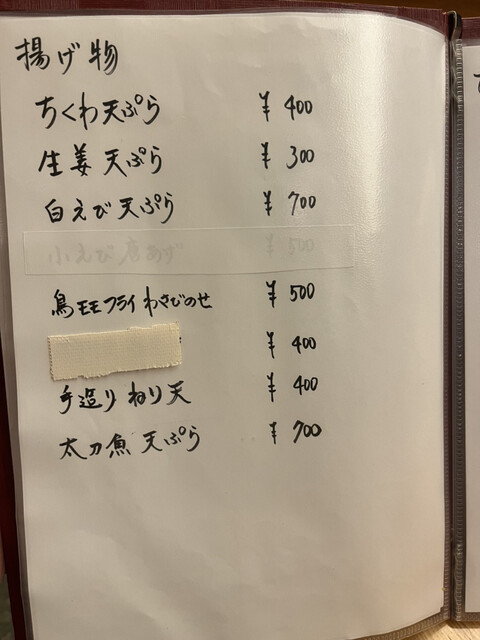 揚げ物
ちくわ天ぷら ¥ 400
生姜天ぷら ¥ 300
白えび天ぷら ¥ 700
小えび唐あげ ¥ 500
鳥モモフライわさびのせ ¥ 500
¥ 400
手造りねり天 ¥ 400
太刀魚 天ぷら ¥ 700